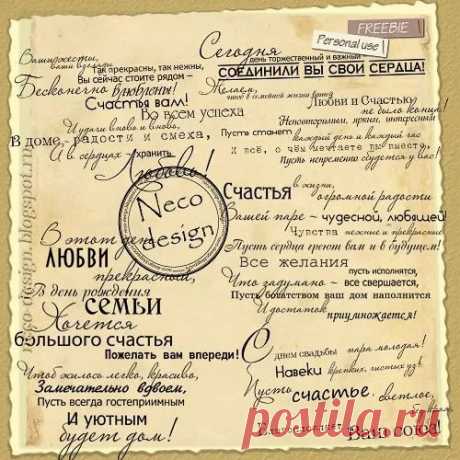 FREEBIE
Personal use!
Ваши
Так прекрасны, так нежны,
Вы сейчас стоите рядом –
Бесконечно влюблены!
Счастья вам!
Во всем успеха
И удачи вновь и вновь,
В доме, - радости и смеха,
А в сердцах - хранить
Любовь!
Neco
design
В этот день
ЛЮБВИ
прекрасный,
В день рождения
семьи
Хочется
большого счастья
Пожелать вам впереди!
Чтоб жилось легко, красиво,
Замечательно вдвоем,
Пусть всегда гостеприимным
И уютным
будет дом!
Сегодня
день торжественный и важный
СОЕДИНИЛИ ВЫ СВОИ СЕРДЦА!
Желаем,
Любви и Счастью
не было конца!
Неповторимым, ярким, интересным
Пусть станет
каждый день и каждый час
И всё, о чём мечтаете вы вместе,
Пусть непременно сбудется у вас!
Счастья
в жизни,
огромной радости
Вашей паре – чудесной, любящей!
Чувства нежные и прекрасные
Пусть сердца греют вам и в будущем!
Все желания
пусть исполнятся,
Что задумано – все свершается,
Пусть богатством ваш дом наполнится
И достаток
приумножается!
С днем свадьбы пара молодая!
Навеки крепких, чистых уз
Пусть
счастье, светлое,
Благословляет
Ваш союз!